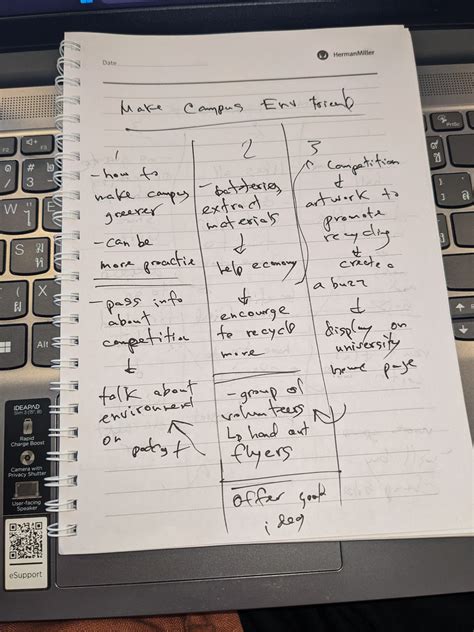 HermanMiller
Date
Make Campus Env friend
1
- how to
make campus
greener
- can be
more practice
- pass info
about
competition
talk about
environment
on
2
- batteries,
extract
materials
help economy
encourge
to recycle
more
- group of
volunteers
hand out
flyers
offer good
idea
3
Competition
artwork to
promote
recycling
create a
a buzz
display on
university
home page
IDEAPAD
Slim 3 (15", 8)
Rapid
Charge Boost
Camera with
Privacy Shutter
User-facing
Speaker
eSupport
PrtSc
Alt